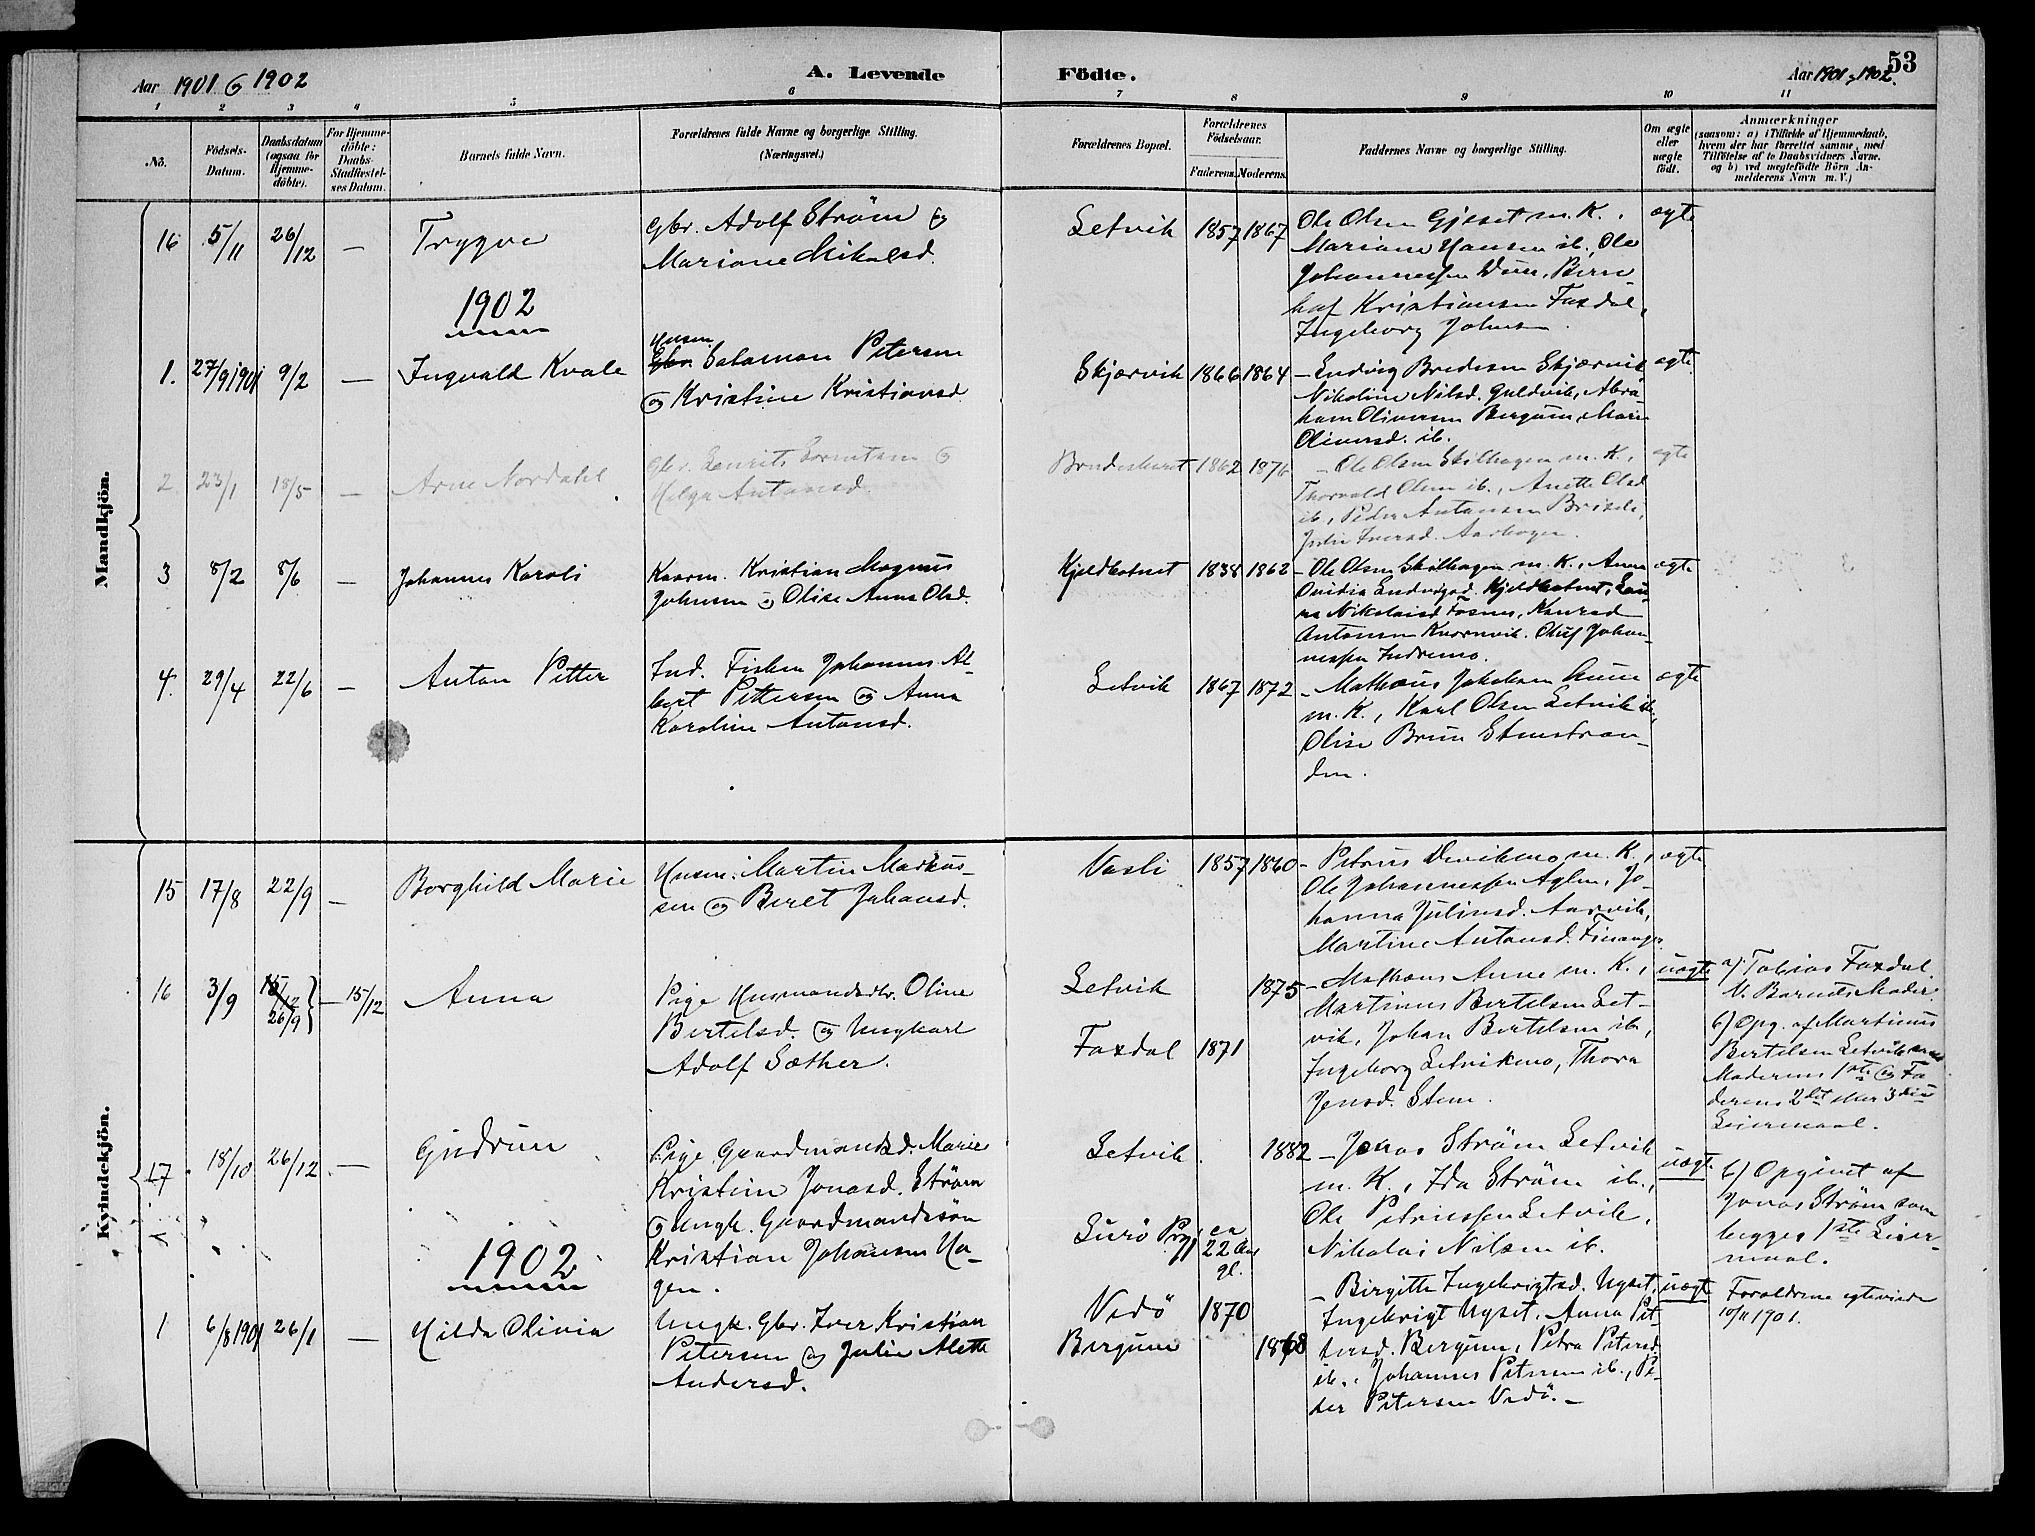 Aar 1901 & 1902
A. Levende
Födte.
Aar 1901 & 1902.
53
1 2 3 4 5 6 7 8 9 10 11
No.
Födsels-Datum.
Daabsdatum (ogsaa for Hjemmedöbte).
For Hjemmedöbte: Daabs-Stadfæstelses Datum.
Barnets fulde Navn.
Forældrenes fulde Navne og borgerlige Stilling.
(Næringsvei.)
Forældrenes Bopæl.
Forældrenes Födselsaar.
Faderens. Moderens.
Faddernes Navne og borgerlige Stilling.
Om ægte eller uægte födt.
Anmærkninger
(saasom: a) i Tilfælde af Hjemmedaab, hvem der har forrettet samme, med Tilföielse af to Daabsvidners Navne, og b) ved uægtefödte Börn Anmelderens Navn m. V.)
Mandkjön.
16 5/11 26/12 — Trygve
Gbr. Adolf Ström og
Mariane Mikalsd.
Letvik 1857 1867
Ole Olsen Gjeset m. K.,
Mariane Hansen ib., Ole
Johannessen
Kristiansen Faxdal,
Ingeborg Johnsen.
ægte
1902
1. 27/9 1901 9/2 — Ingvald Kvale
Husm.
Gbr. Salamon Petersen
og Kristine Kristiansd.
Skjærvik 1866 1864
— Ludvig Bredesen Skjærvik
Nikoline Nilsd. Guldvik, Abra-
ham Oliversen Bergum, Marie
Oliversd. ib.
ægte
2 23/1 18/5 — Arne Nordahl
Gbr. Laurits Lorentsen og
Helga Antonsd.
1862 1876
— Ole Olsen Skilhagen m. K.,
Thorvald Olsen ib., Anette Olsd.
ib., Peder Antonsen
Julie Iversd. Aarhagen.
ægte
3 8/2 8/6 — Johannes Karoli
Kaarm. Kristian Magnus
Johnsen og Olise Anna Olsd.
Kjeldbotnet 1838 1862
— Ole Olsen Skilhagen m. K., Anna
Ovidia Ludvigsd. Kjeldbotnet, Lau-
ra Nikolaisd Fosnes, Konrad
Antonsen Kvernvik. Oluf Johan-
nessen Indremo.
ægte
4. 29/4 22/6 — Anton Petter
Ind. Fisker Johannes Al-
bert Pettersen og Anna
Karoline Antonsd.
Letvik 1867 1872
— Mathæus Jakobsen Aune
m. K., Karl Olsen Letvik ib.,
Olise Brun Stenstran-
den.
ægte
Kvindekjön.
15 17/8 22/9 — Borghild Marie
Husm. Martin Markus-
sen og Beret Johansd.
Vasli 1857 1860
— Petrus Devikmo m. K.,
Ole Johannessen Aglen, Jo-
hanna Juliusd. Aarvik,
Martine Antonsd. Finanger
ægte
16 3/9 15/12 26/9 — 15/12 Anna
Pige Husmandsdtr. Oline
Bertelsd. og Ungkarl
Adolf Sæther.
Letvik 1875
Faxdal 1871
— Mathæus Aune m. K.,
Martinus Bertelsen Let-
vik, Johan Bertelsen ib.,
Ingeborg Letvikmo, Thora
Jensd. Stene.
uægte
a) Tobias Faxdal.
V. Barnets Moder.
b) Opg. af Martinus
Bertelsen Letvik som
Moderens 1ste og Fa-
derens 2det eller 3die
Leiermaal.
17 18/10 26/12 — Gudrun
Pige Gaardmandsd. Marie
Kristine Jonasd. Ström
og Ungk. Gaardmandssön
Kristian Johansen Ha-
gen.
Letvik. 1882
Lurö Prgj ca 22 Aar gl.
— Jonas Ström Letvik
m. K., Ida Ström ib.,
Ole Petriussen Letvik,
Nikolai Nilsen ib.
uægte
b) Opgivet af
Jonas Ström som
begges 1ste Leier-
maal.
1902
1 6/8 1901 26/1 — Hilda Olivia
Ungk. Gbr. Iver Kristian
Petersen og Julie Alette
Andersd.
Vedö 1870
Bergum 1868
— Birgitte Ingebrigtsd. Nyset,
Ingebrigt Nyset, Anna Pet-
tersd. Bergum, Petra Petersd.
ib., Johannes Petersen ib., Pe-
ter Petersen Vedö. —
uægte
Forældrene egteviede
10/11 1901.